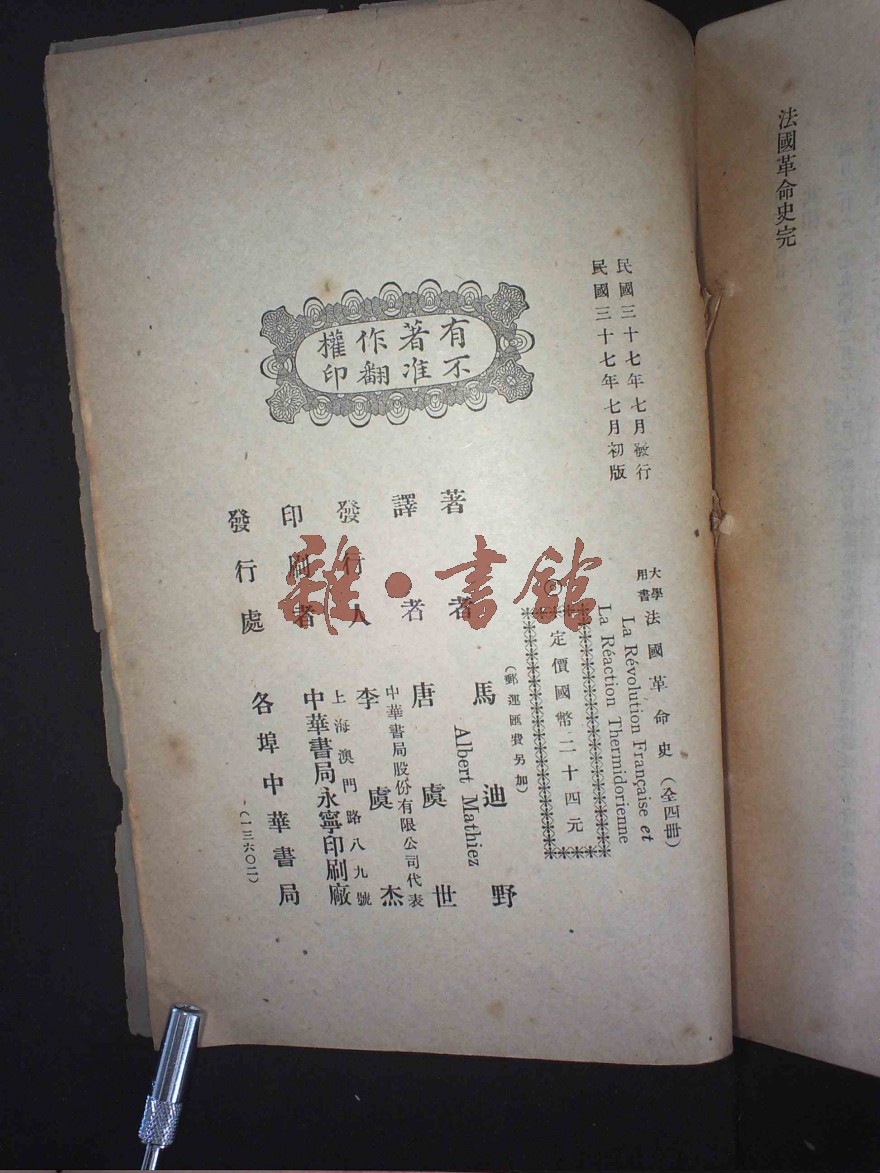 法國革命史完
民國三十七年七月發行
民國三十七年七月初版
大學用書 法國革命史（全四冊）
La Révolution Française et
La Réaction Thermidorienne
定價國幣二十四元
（郵運匯費另加）
著者 馬迪野
Albert Mathiez
譯者 唐虞世
中華書局股份有限公司代表
發行人 李虞杰
上海澳門路八九號
印刷者 中華書局永寧印刷廠
發行處 各埠中華書局
（一三六〇二）
有著作權
不准翻印
雜·書館